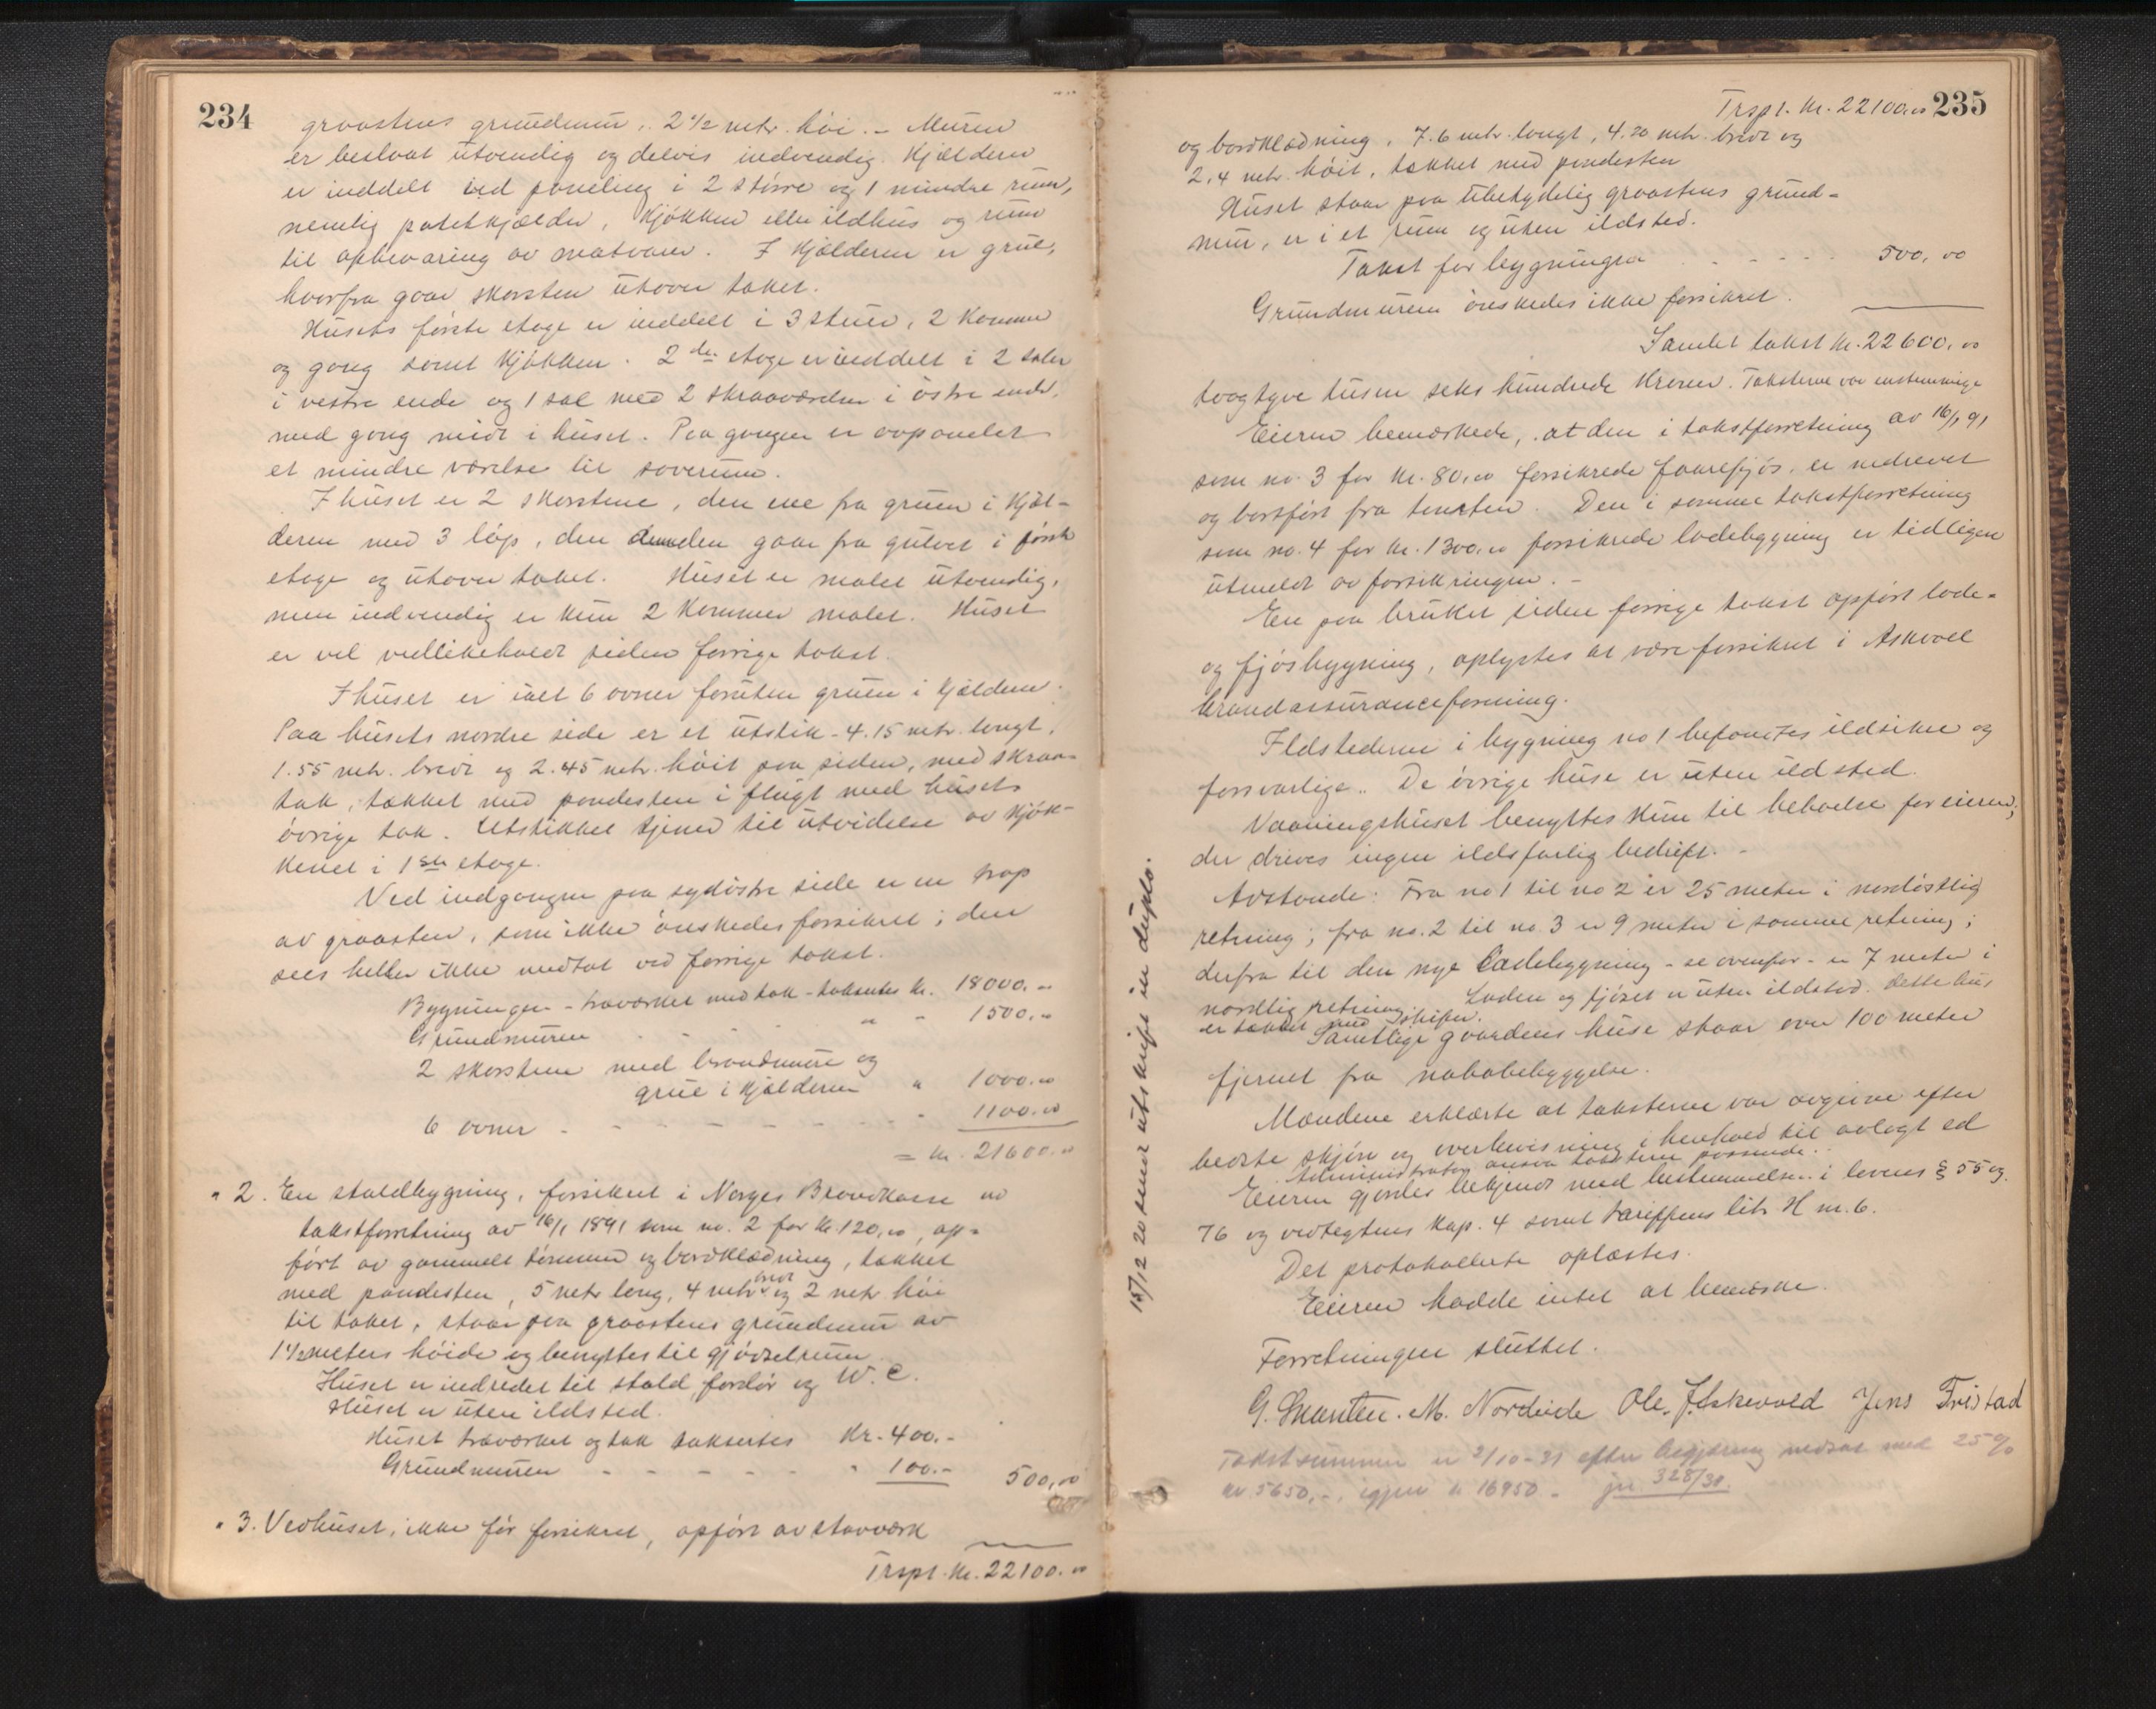 234
graastens grundmur, 2 1/2 mtr. høi. - Muren
er beslaat utvendig og delvis indvendig. Kjælderen
er inddelt ved paneling i 2 større og 1 mindre rum,
nemlig potetkjælder, kjøkken eller ildhus og rum
til opbevaring av matvarer. I kjælderen er grue,
hvorfra gaar skorsten utover taket.
Husets første etage er inddelt i 3 stuer, 2 kammer
og gang samt kjøkken. 2den etage er inddelt i 2 saler
i vestre ende og 1 sal med 2 skraaværelser i østre ende,
med gang midt i huset. Paa gangen er avpanelet
et mindre værelse til soverum.
I huset er 2 skorstene, den ene fra gruen i kjæl-
deren med 3 løp, den anden gaar fra gulvet i første
etage og utover taket. Huset er malet utvendig,
men indvendig er kun 2 kammer malet. Huset
er vel vedlikeholdt siden forrige takst.
I huset er ialt 6 ovner foruten gruen i kjælderen.
Paa husets nordre side er et utstik - 4.15 mtr. langt,
1.55 mtr. bredt og 2.45 mtr. høit paa siden, med skraa-
tak, tækket med pandesten i flugt med husets
øvrige tak. Utstikket tjener til utvidelse av kjøk-
kenet i 1ste etage.
Ved indgangen paa sydøstre side er en trap
av graasten, som ikke ønskedes forsikret; den
sees heller ikke medtat ved forrige takst.
Bygningen - træverket med tak - taksertes kr. 18000.-
Grundmuren " - 1500.-
2 skorstene med brandmure og
grue i kjælderen " 1000.00
6 ovner - - - - - - - 1100.00
= kr. 21600.00
" 2. En staldbygning, forsikret i Norges Brandkasse ved
takstforretning av 16/1 1891 som no. 2 for kr. 120,00, op-
ført av gammelt tømmer og bordklædning, tækket
med pandesten, 5 mtr lang, 4 mtr bred og 2 mtr høi
til taket, staar paa graastens grundmur av
1 1/2 meters høide og benyttes til gjødselrum.
Huset er indredet til stald, forlør og W. C.
Huset er uten ildsted.
Huset træverket og tak taksertes Kr. 400.-
Grundmuren - - - - - " 100.- 500,00
" 3. Vedhuset, ikke før forsikret, opført av stavverk
Trspt. kr. 22100.00
15/12 20 sendt utskrift in duplo.
Trspt. kr. 22100.00 235
og bordklædning, 7.6 mtr. langt, 4.20 mtr. bredt og
2.4 mtr. høit, tækket med pandesten
Huset staar paa ubetydelig graastens grund-
mur, er i et rum og uten ildsted.
Takst for bygningen - - - - - 500,00
Grundmuren ønskedes ikke forsikret.
Samlet takst kr. 22600,00
toogtyve tusen seks hundrede kroner. Taksterne var enstemmige
Eieren bemerkede, at den i takstforretning av 16/1 91
som no. 3 for kr. 80,00 forsikrede faarefjøs, er nedrevet
og bortført fra tomten. Den i samme takstforretning
som no. 4 for kr. 1300,00 forsikrede ladebygning er tidligere
utmeldt av forsikringen. -
En paa bruket siden forrige takst opført lade-
og fjøsbygning, oplystes at være forsikret i Askvoll
brandassuranceforening.
Ildstederne i bygning no 1 befandtes ildsikre og
forsvarlige. De øvrige huse er uten ildsted.
Vaaningshuset benyttes kun til beboelse for eieren,
der drives ingen ildsfarlig bedrift. -
Avstande: Fra no 1 til no 2 er 25 meter i nordøstlig
retning; fra no. 2 til no. 3 er 9 meter i samme retning;
derfra til den nye ladebygning - se ovenfor - er 7 meter i
nordlig retning. Laden og fjøset er uten ildsted. Dette hus
er tækket med skifer.
Samtlige gaardens huse staar over 100 meter
fjernet fra nabobebyggelse.
Mændene erklærte at taksterne var avgivne efter
bedste skjøn og overbevisning i henhold til avlagt ed
Administrator ansaa taksterne passende.
Eieren gjordes bekjendt med bestemmelsen i lovens § 55 og
76 og vedtegtens kap. 4 samt tariffens litr. H nr. 6.
Det protokollerte oplæstes.
Eieren hadde intet at bemerke.
Forretningen sluttet.
G. M. Nordeide Ole J. Askevold Jens Tveistad
Takstsummen er 2/10-31 efter begjæring nedsat med 25%
kr. 5650,-, igjen kr 16950.- jnr 328/31.